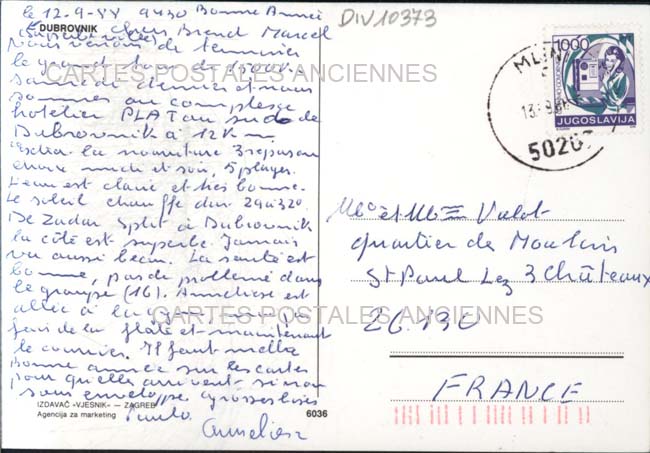 le 12-9-88 9430 Bonne Année
DIV10373
DUBROVNIK
chers Brand Marcel
Nous venons de terminer
le grand tour de
samedi dernier et nous
sommes au complexe
hotelier PLAT au sud de
Dubrovnik à 12 Km
la nourriture 3 repas au
choix midi et soir, 5 plages.
L'eau est claire et très bonne.
Le soleil chauffe dur 29 à 32°.
De Zadar Split à Dubrovnik
la côte est superbe. Jamais
vu aussi beau. La santé est
bonne, pas de problème dans
le groupe (16). Anneliese est
allée à la
fais de la flote et maintenant
le courrier. Il faut mettre
Bonne année sur les cartes
pour qu'elles arrivent sinon
sous enveloppe grosses bises
Paulo
Anneliese
IZDAVAČ «VJESNIK» — ZAGREB
Agencija za marketing
6036
CARTES POSTALES ANCIENNES
CARTES POSTALES ANCIENNES
MLINI
50207
1000
JUGOSLAVIJA
Mr et Mme Valot
quartier de Moulins
St Paul Lez 3 Châteaux
26.130
FRANCE